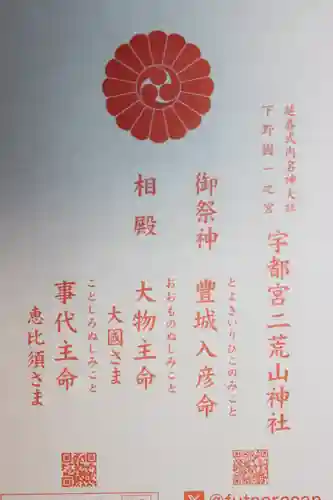 延喜式内名神大社
下野國一之宮
宇都宮二荒山神社
御祭神
とよきいりひこのみこと
豐城入彦命
相殿
おおものぬしみこと
大物主命
大國さま
ことしろぬしみこと
事代主命
恵比須さま